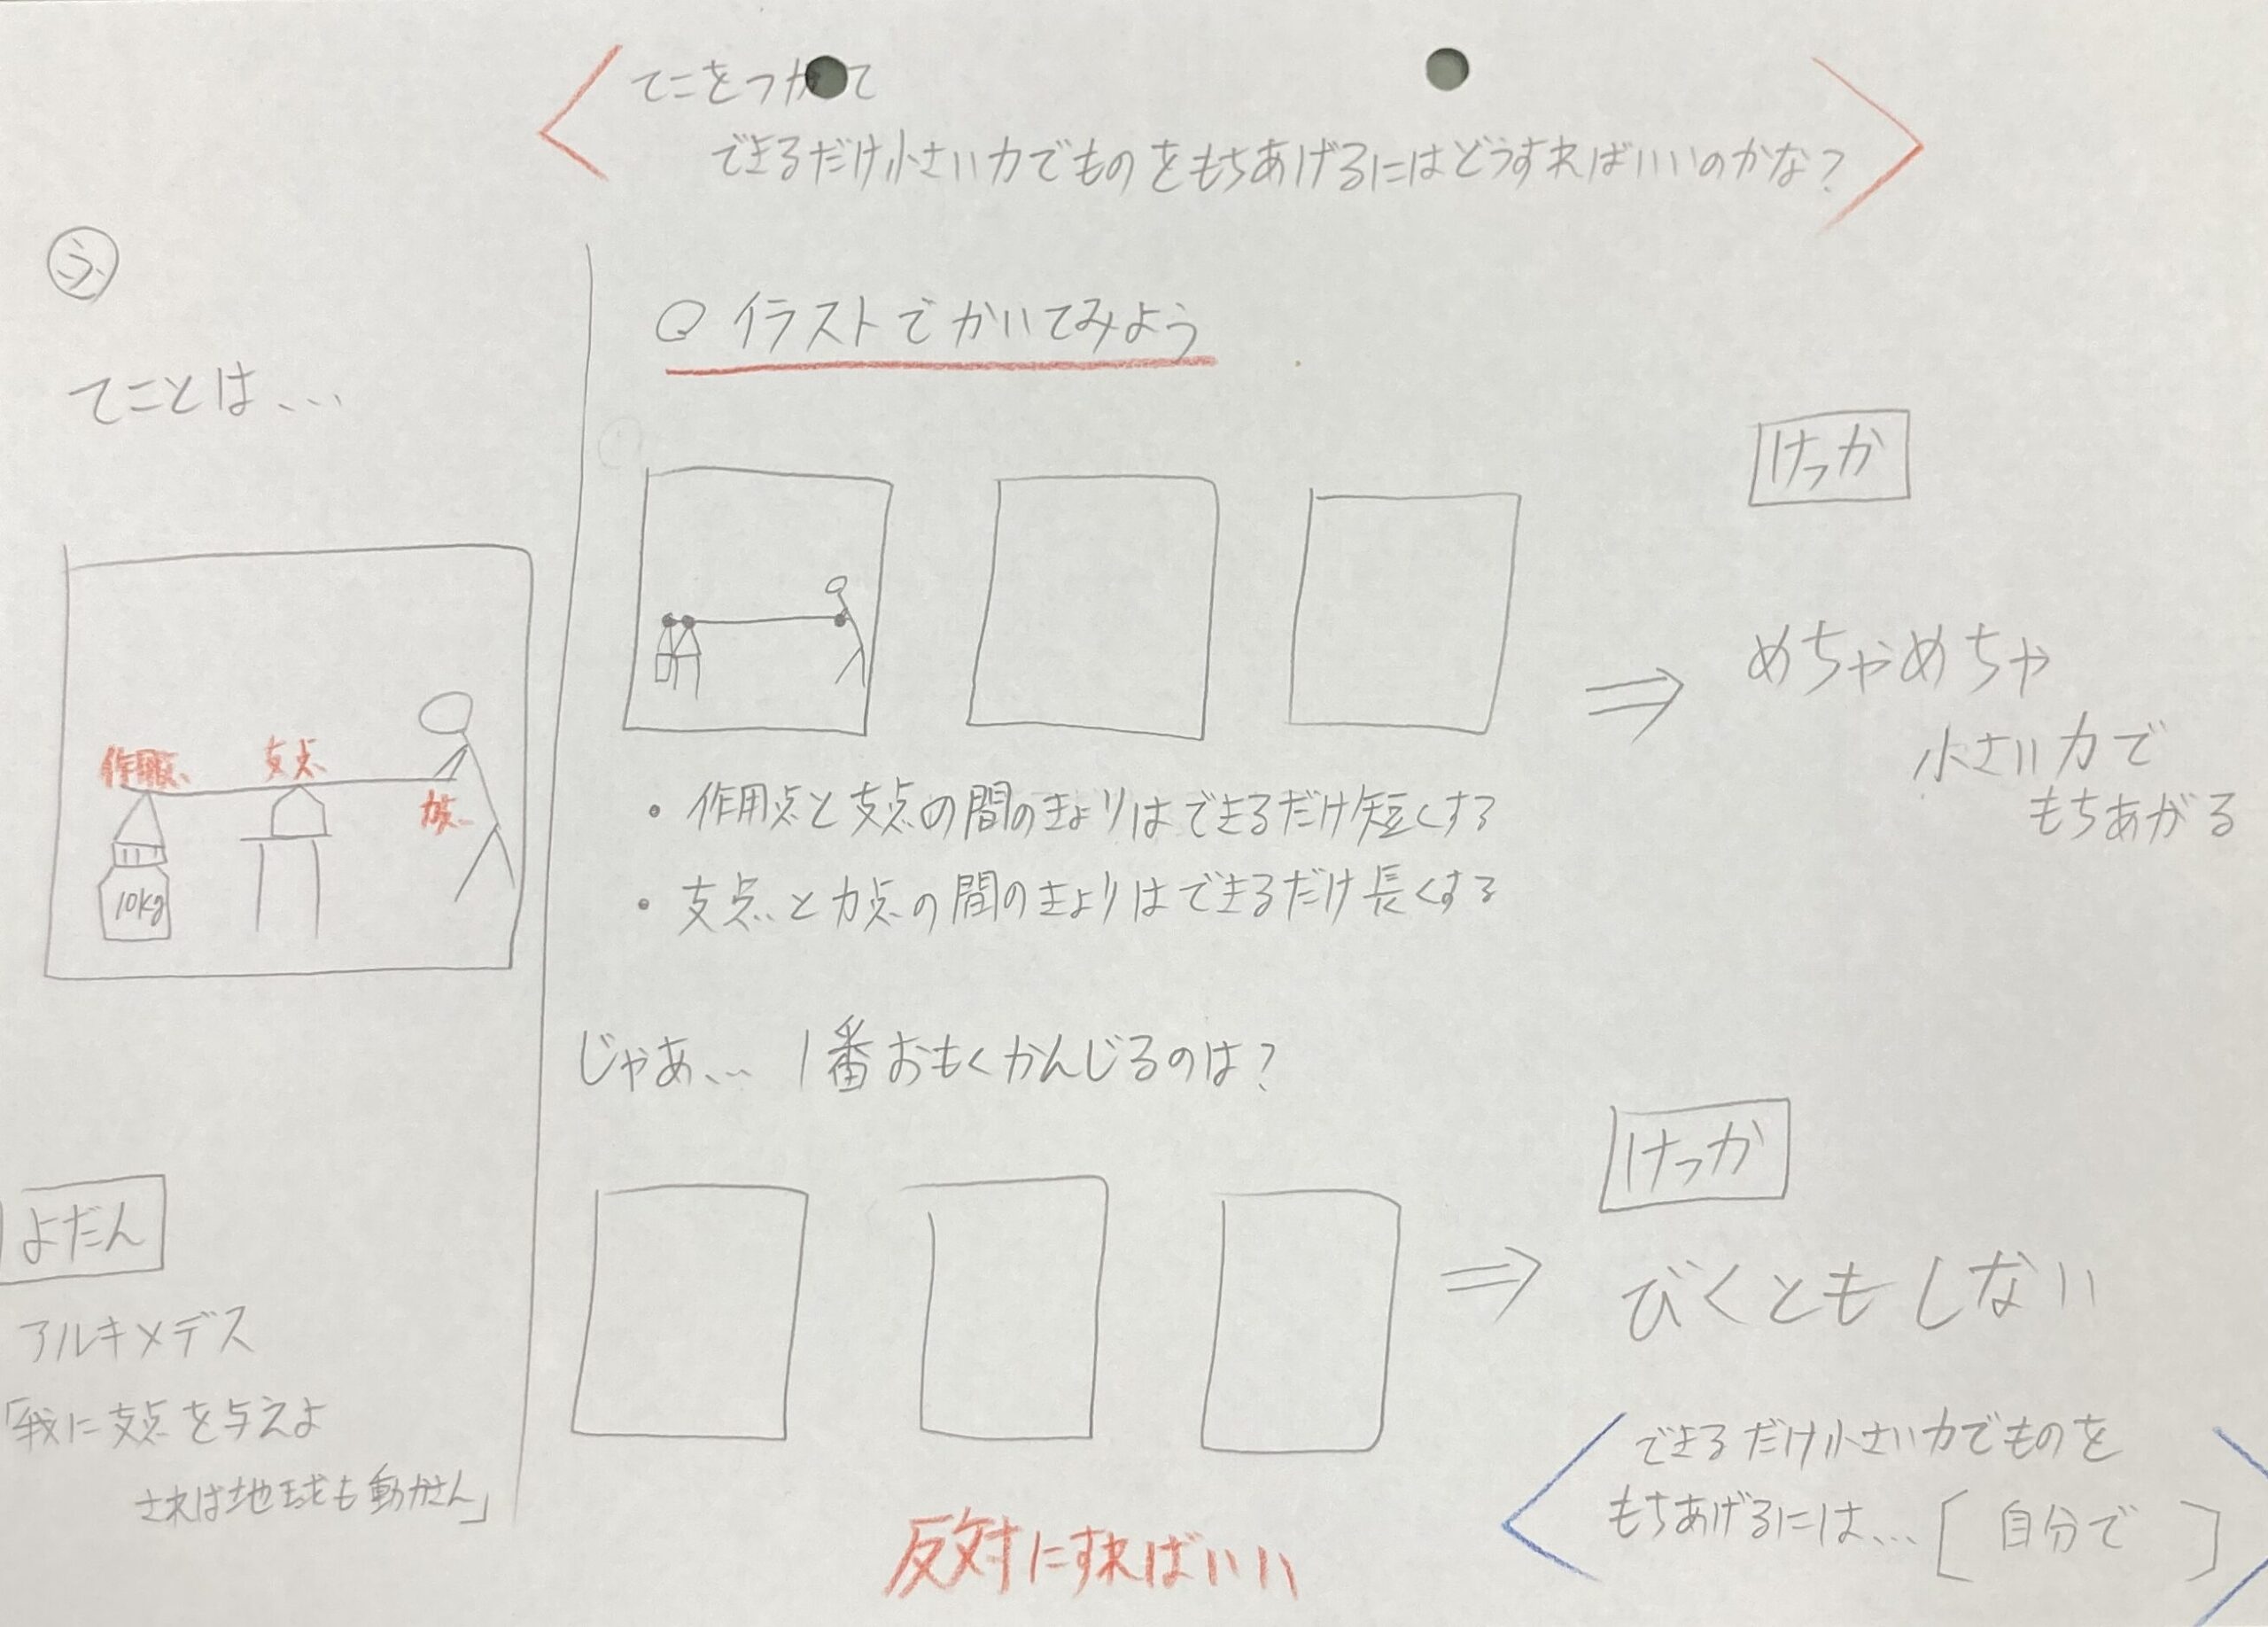 てこをつかて
できるだけ小さい力でものをもちあげるにはどうすればいいのかな?
ふ
てことは…
作用点
支点
力点
10kg
よだん
アルキメデス
「我に支点を与えよ
されば地球も動かさん」
Q イラストでかいてみよう
・作用点と支点の間のきょりはできるだけ短くする
・支点と力点の間のきょりはできるだけ長くする
けっか
めちゃめちゃ
小さい力で
もちあがる
じゃあ… 1番おもくかんじるのは?
けっか
びくともしない
反対にすればいい
できるだけ小さい力でものを
もちあげるには…[ 自分で ]